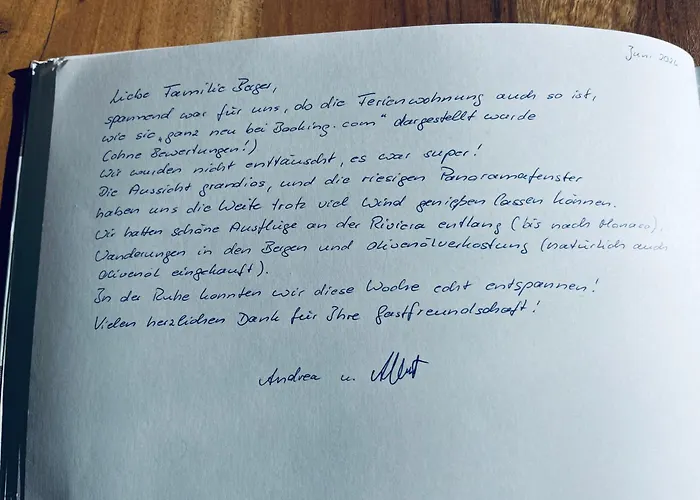 Juni 2024
Liebe Familie Berger,
spannend war für uns, ob die Ferienwohnung auch so ist,
wie sie „ganz neu bei Booking.com“ dargestellt wurde
(ohne Bewertungen!)
Wir wurden nicht enttäuscht, es war super!
Die Aussicht grandios, und die riesigen Panoramafenster
haben uns die Weite trotz viel Wind genießen lassen können.
Wir hatten schöne Ausflüge an der Riviera entlang (bis nach Monaco),
Wanderungen in den Bergen und Olivenölverkostung (natürlich auch
Olivenöl eingekauft).
In der Ruhe konnten wir diese Woche echt entspannen!
Vielen herzlichen Dank für Ihre Gastfreundschaft!
Andrea u.